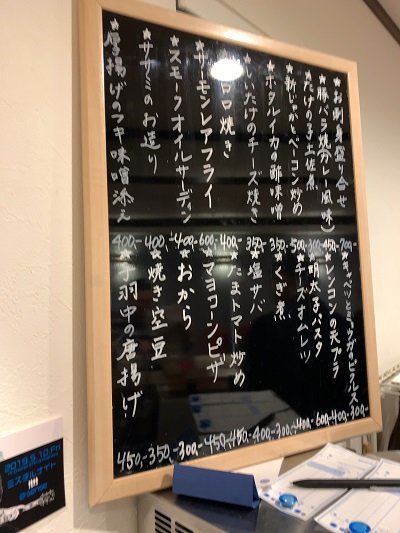 ★お刺身盛り合せ 700,-
★豚バラ焼(カレー風味) 450,-
★たけの子土佐煮 300,-
★新じゃがベーコン炒め 500,-
★ホタルイカの酢味噌 350,-
★しいたけのチーズ焼き 350,-
トロロ焼き 400,-
★サーモンレアフライ 600,-
★スモークオイルサーディン 400,-
★ササミのお造り 400,-
★唐揚げのフキ味噌添え 400,-
★キャベツとミョウガのピクルス 300,-
★レンコンの天プラ 400,-
★明太子パスタ 600,-
★チーズオムレツ 400,-
★くぎ煮 300,-
★塩サバ 400,-
★たまトマト炒め 450,-
★マヨコーンピザ 450,-
★おから 300,-
★焼き空豆 350,-
★手羽中の唐揚げ 450,-
2019.5.10.Fri
ミスダルナイト